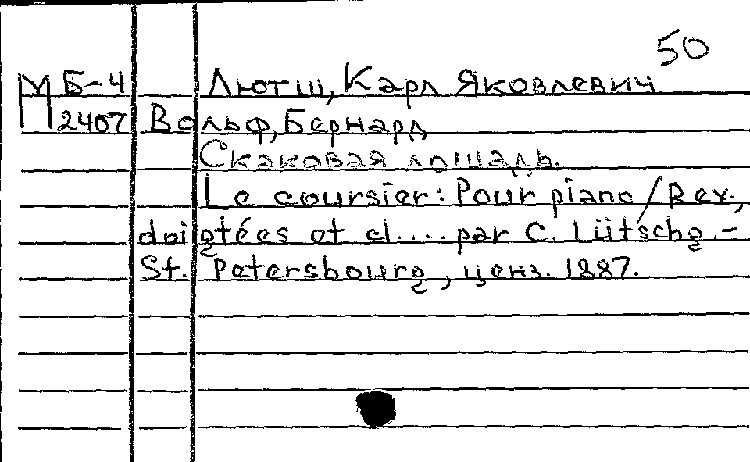 50
М Б-4 Лютш, Карл Яковлевич
2407 Вольф, Бернард
Скаковая лошадь.
Le coursier: Pour piano / Rev.,
doigtées et cl.... par C. Lütschg. -
St. Petersbourg, ценз. 1887.